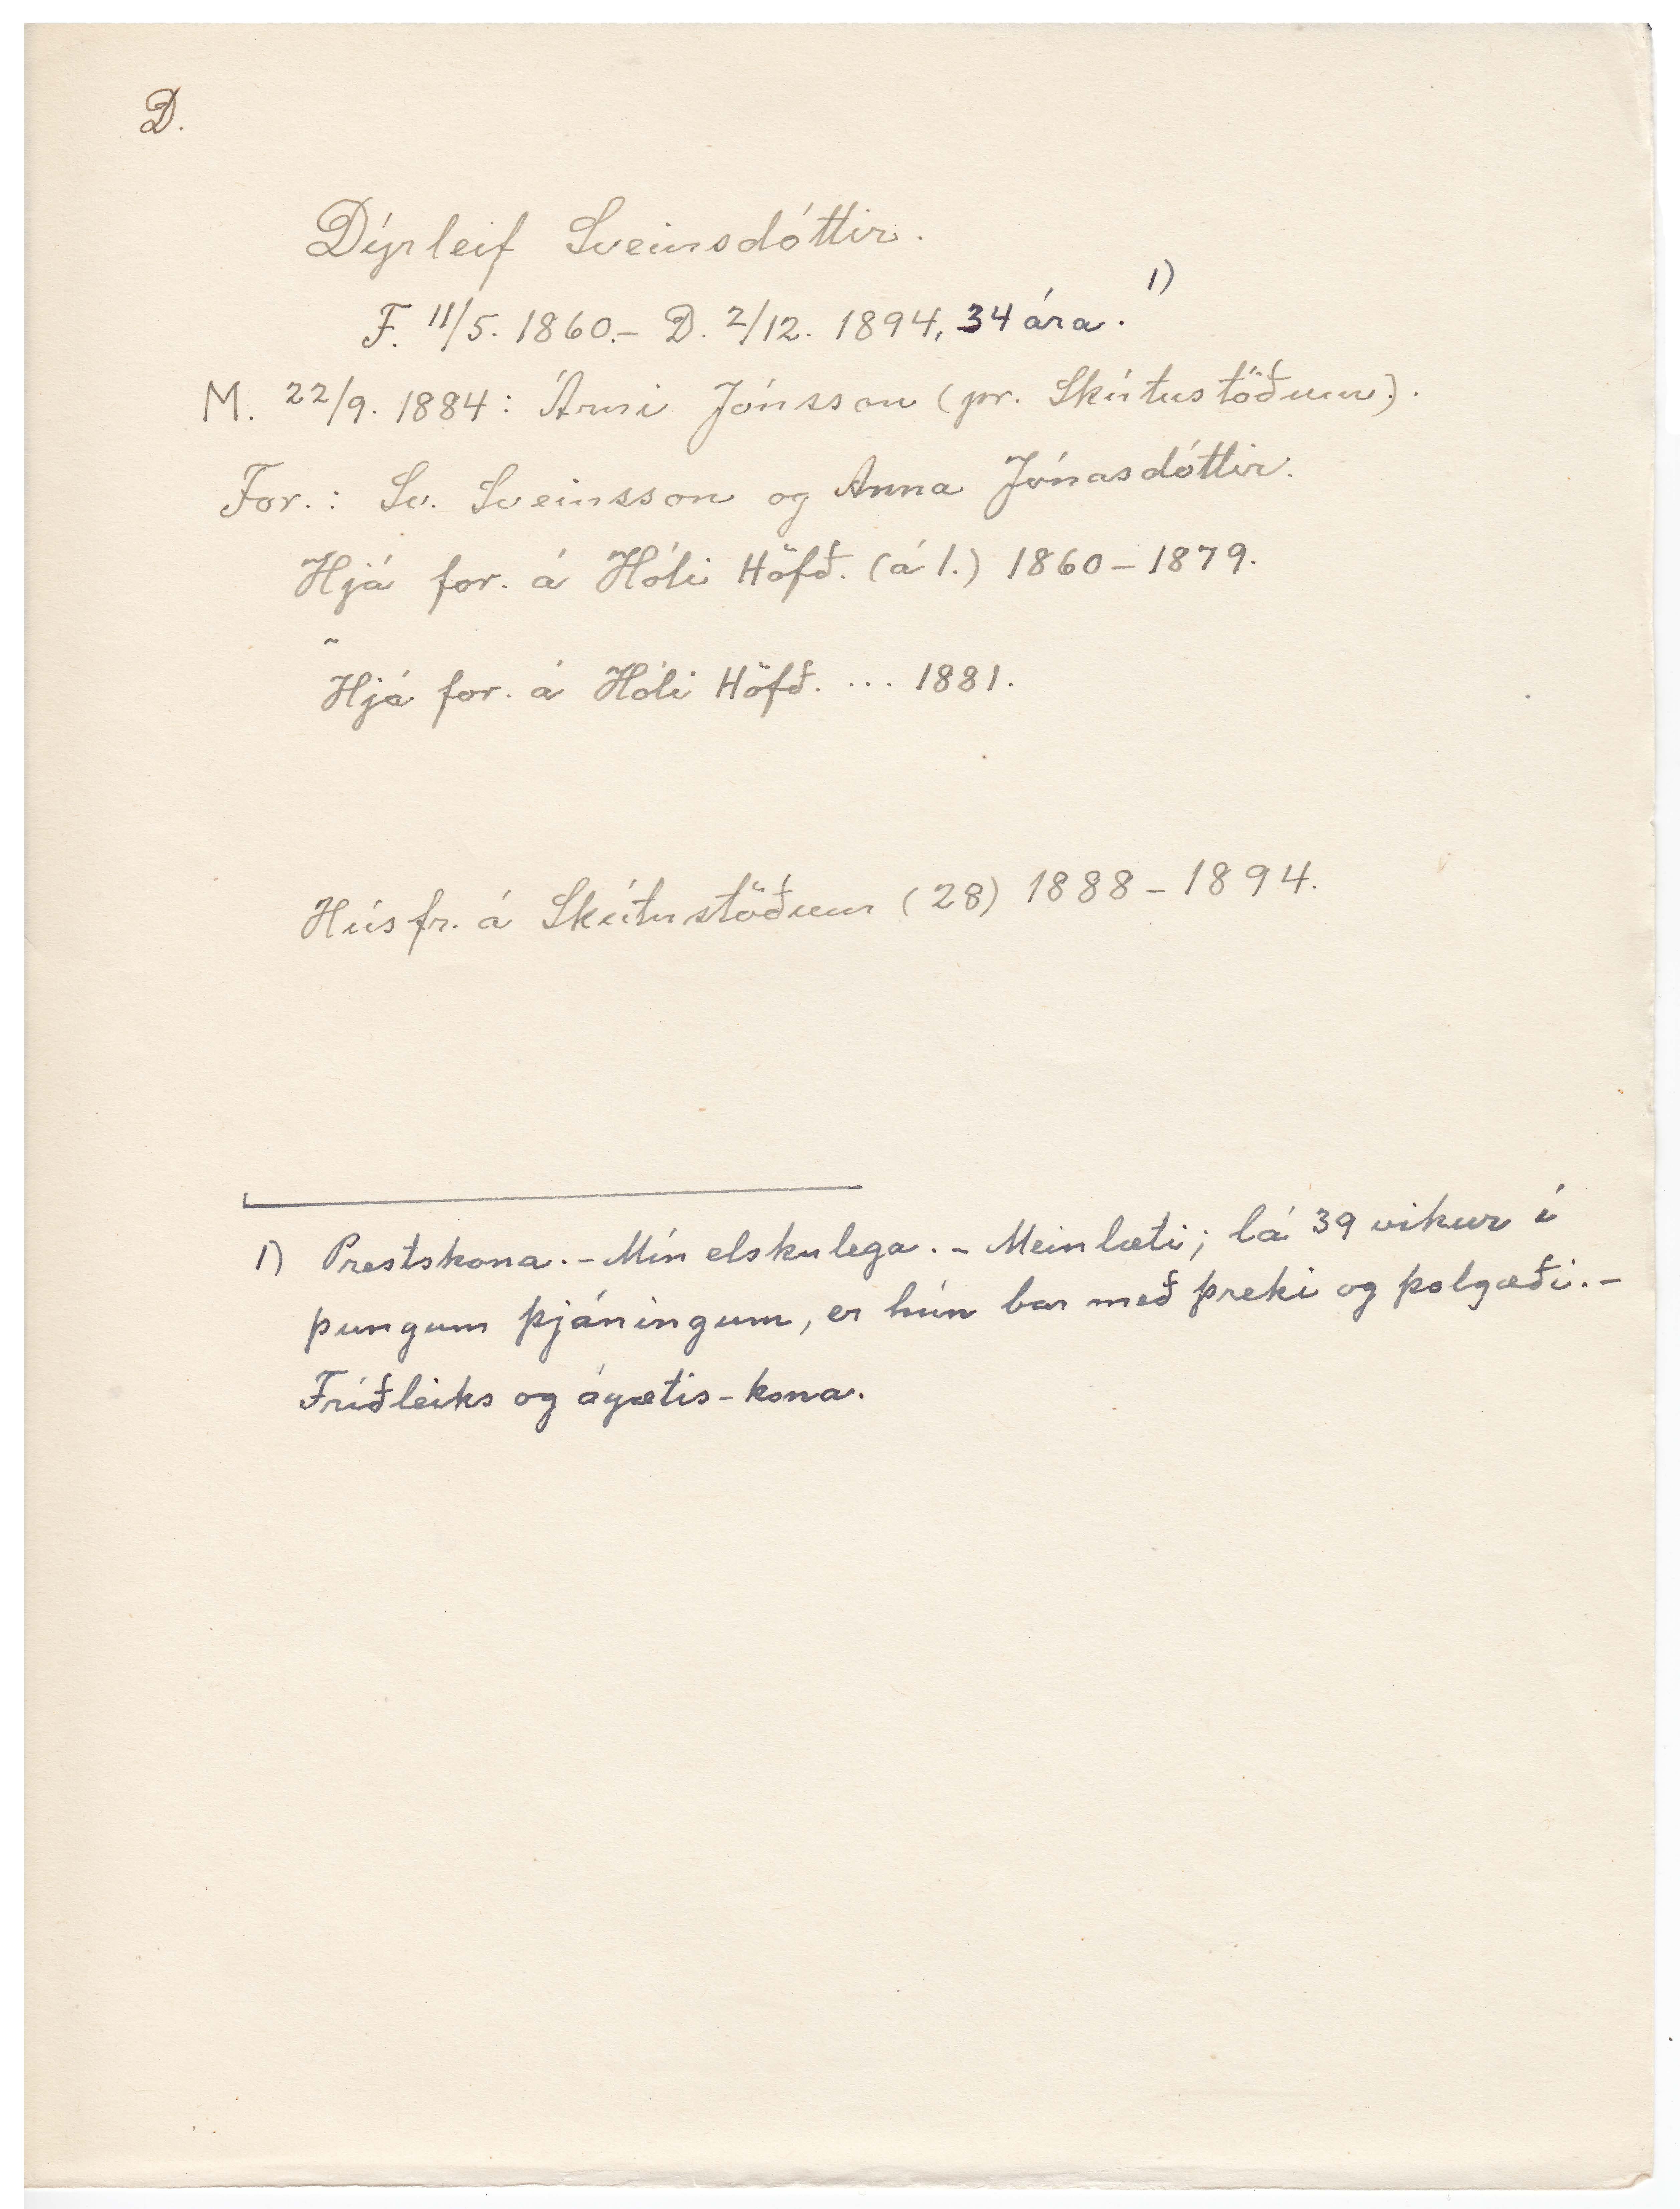 D.
Dýrleif Sveinsdóttir.
F. 11/5. 1860.- D. 2/12. 1894, 34 ára. 1)
M. 22/9. 1884: Árni Jónsson (pr. Skútustöðum).
For.: Sv. Sveinsson og Anna Jónasdóttir.
Hjá for. á Hóli Höfð. (á 1.) 1860-1879.
Hjá for. á Hóli Höfð. ... 1881.
Húsfr. á Skútustöðum (28) 1888-1894.
1) Prestskona.- Mín elskulega.- Meinlæti; lá 39 vikur í
þungum þjáningum, er hún bar með þreki og þolgæði.-
Fríðleiks og ágætis-kona.